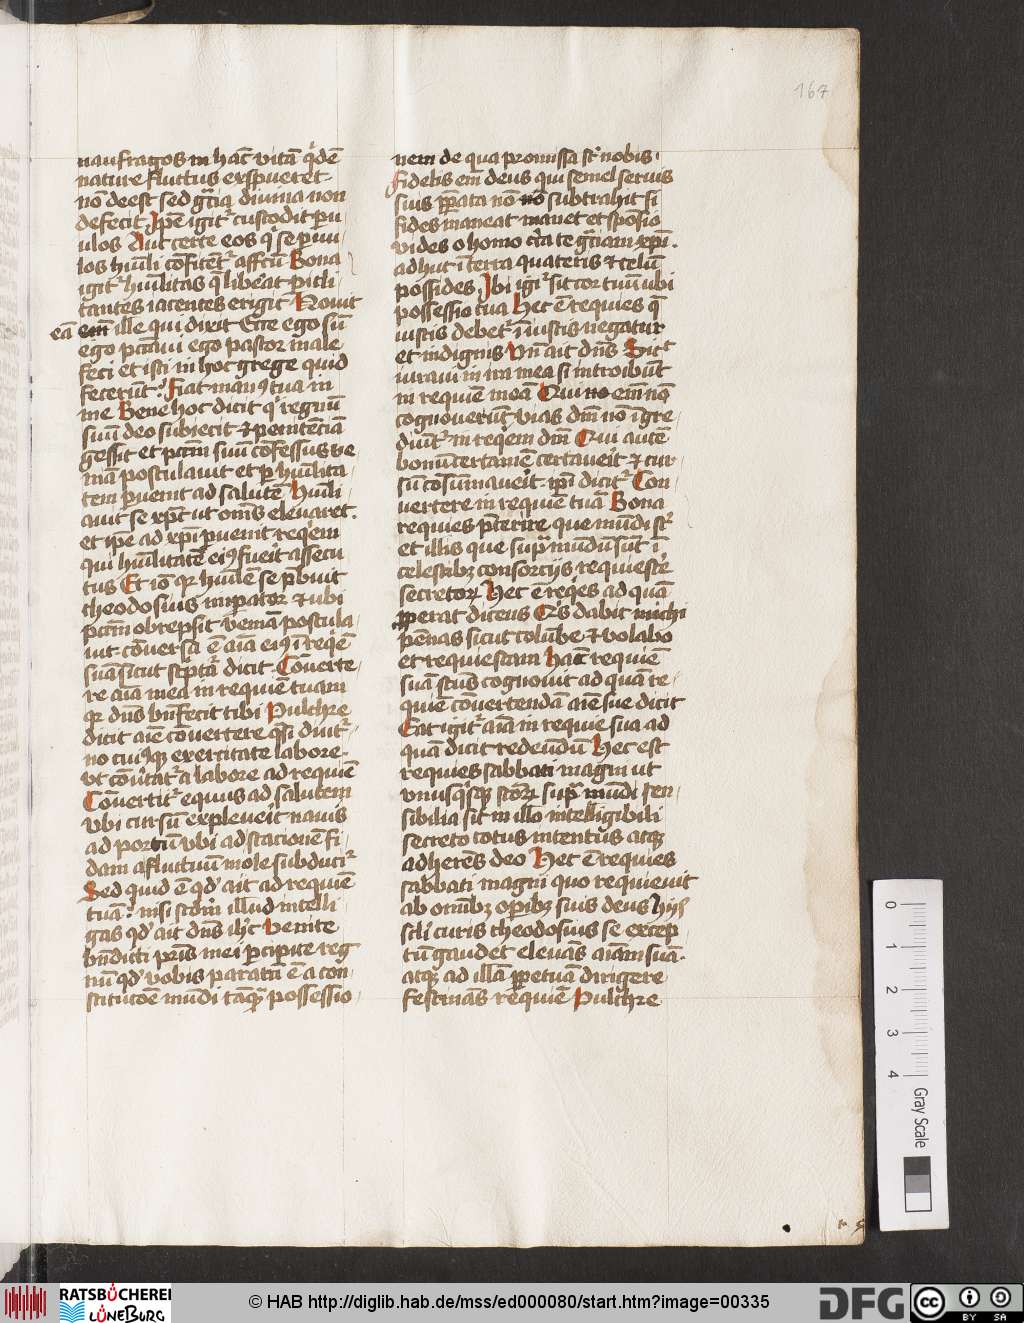 167
naufragos in hac̄ vitā q'dē
nature fluctus exspueret
nō deest sed gr̄aq̄ diuina non
defecit Ip̄e igit' custodit p̄u
ulos Aut certe eos q' se p̄uu
los hūili cōfitēt' affcū Bona
igit' hūilitas q̄ lib̄at picli
tantes iacentes erigit Nouit
eā em̄ ille qui dixit Ecce ego sū
ego pccāui ego pastor male
feci et isti in hoc grege quid
fecerunt Fiat man⁹ tua in
me Bene hoc dicit q' regnū
suū deo subiecit et penitēciā
gessit et pccm̄ suū cōfessus ve
niā postulauit et p̄ hūilita
tem p̄uenit ad salutē Hūili
auit se xp̄c ut om̄s eleuaret
et ip̄e ad xp̄i p̄uenit reqēm
qui hūilitatē ei⁹ fuēit assecu
tus Et iō q̄ hūilē se p̄buit
theodosius imp̄ator et ubi
pccm̄ obrepsit veniā postula
uit cōuersa ē aīa ei⁹ ī reqē
suā sicut sc̄ptā dicit Cōuerte
re aīa mea in requiē tuam
q̄ dn̄s bn̄fecit tibi Pulchre
dicit aīe cōuertere
no exercitate labore
vt a labore ad requiē
Cōuertit' equus ad salutem
vbi cursū expleueit nauis
ad portū vbi ad stacionē fi
dam a fluctuū mole subducit'
Sed quid ē qd' ait ad requiē
tuā nisi illud intelli
gas qd' ait dn̄s ih̄c Venite
bn̄dicti pr̄is mei p̄cipite reg
nū qd' vobis paratū ē a con
stitucōe mūdi tāq̄ possessio
nem de qua promissa st̄ nobis
Fidelis em̄ deus qui semel seruis
suis p̄pata nō nō subtrahit si
fides maneat manet et sposio
vides o homo c̄ca te gr̄ciam xp̄i
adhuc ī terra quateris et celū
possides Ibi igi' sit cor tuū ubi
possessio tua Hec ē requies q̄
iustis debet' īiustis negatur
et indignis Vn̄ ait dn̄s Sic
iuraui in ira mea si introibūt
in requiē meā Qui no em̄ nō
cognouerūt vias dm̄ nō īgre
diūt' in reqem dm̄ Qui autē
bonū certamē certaueit et cur
sū cōsūmaueit ip̄i dicit' Con
uertere in requiē tuā Bona
requies p̄terire que mūdi st̄
et illis que sup̄ mūdū sūt ī
celestib; consorcijs requiescē
secretor̄ Hec ē reqēs ad quā
p̄perat dicens Q̄s dabit michi
pēnas sicut colūbe et volabo
et requiescam Hāc requiē
suā sc̄us cognouit ad quā re
quiē cōuertendā aīe sue dicit
Eat igit' aīa in requie sua ad
quā dicit redeūdū Hec est
requies sabbati magni ut
vnusq̄sq; sc̄or̄ sup̄ mūdi sen
sibilia sit in illo intelligibili
secreto totus intentus atq;
adherēs deo Hec ē requies
sabbati magni quo requieuit
ab om̄ib; op̄ibus suis deus Hijs
sc̄li curis theodosius se excep
tū gaudet eleuās aīam suā
atq; ad illā p̄petuā dirigere
festinās requiē Pulchre
0
1
2
3
4
Gray Scale
RATSBÜCHEREI
LÜNEBURG
© HAB http://diglib.hab.de/mss/ed000080/start.htm?image=00335
DFG
cc
BY SA